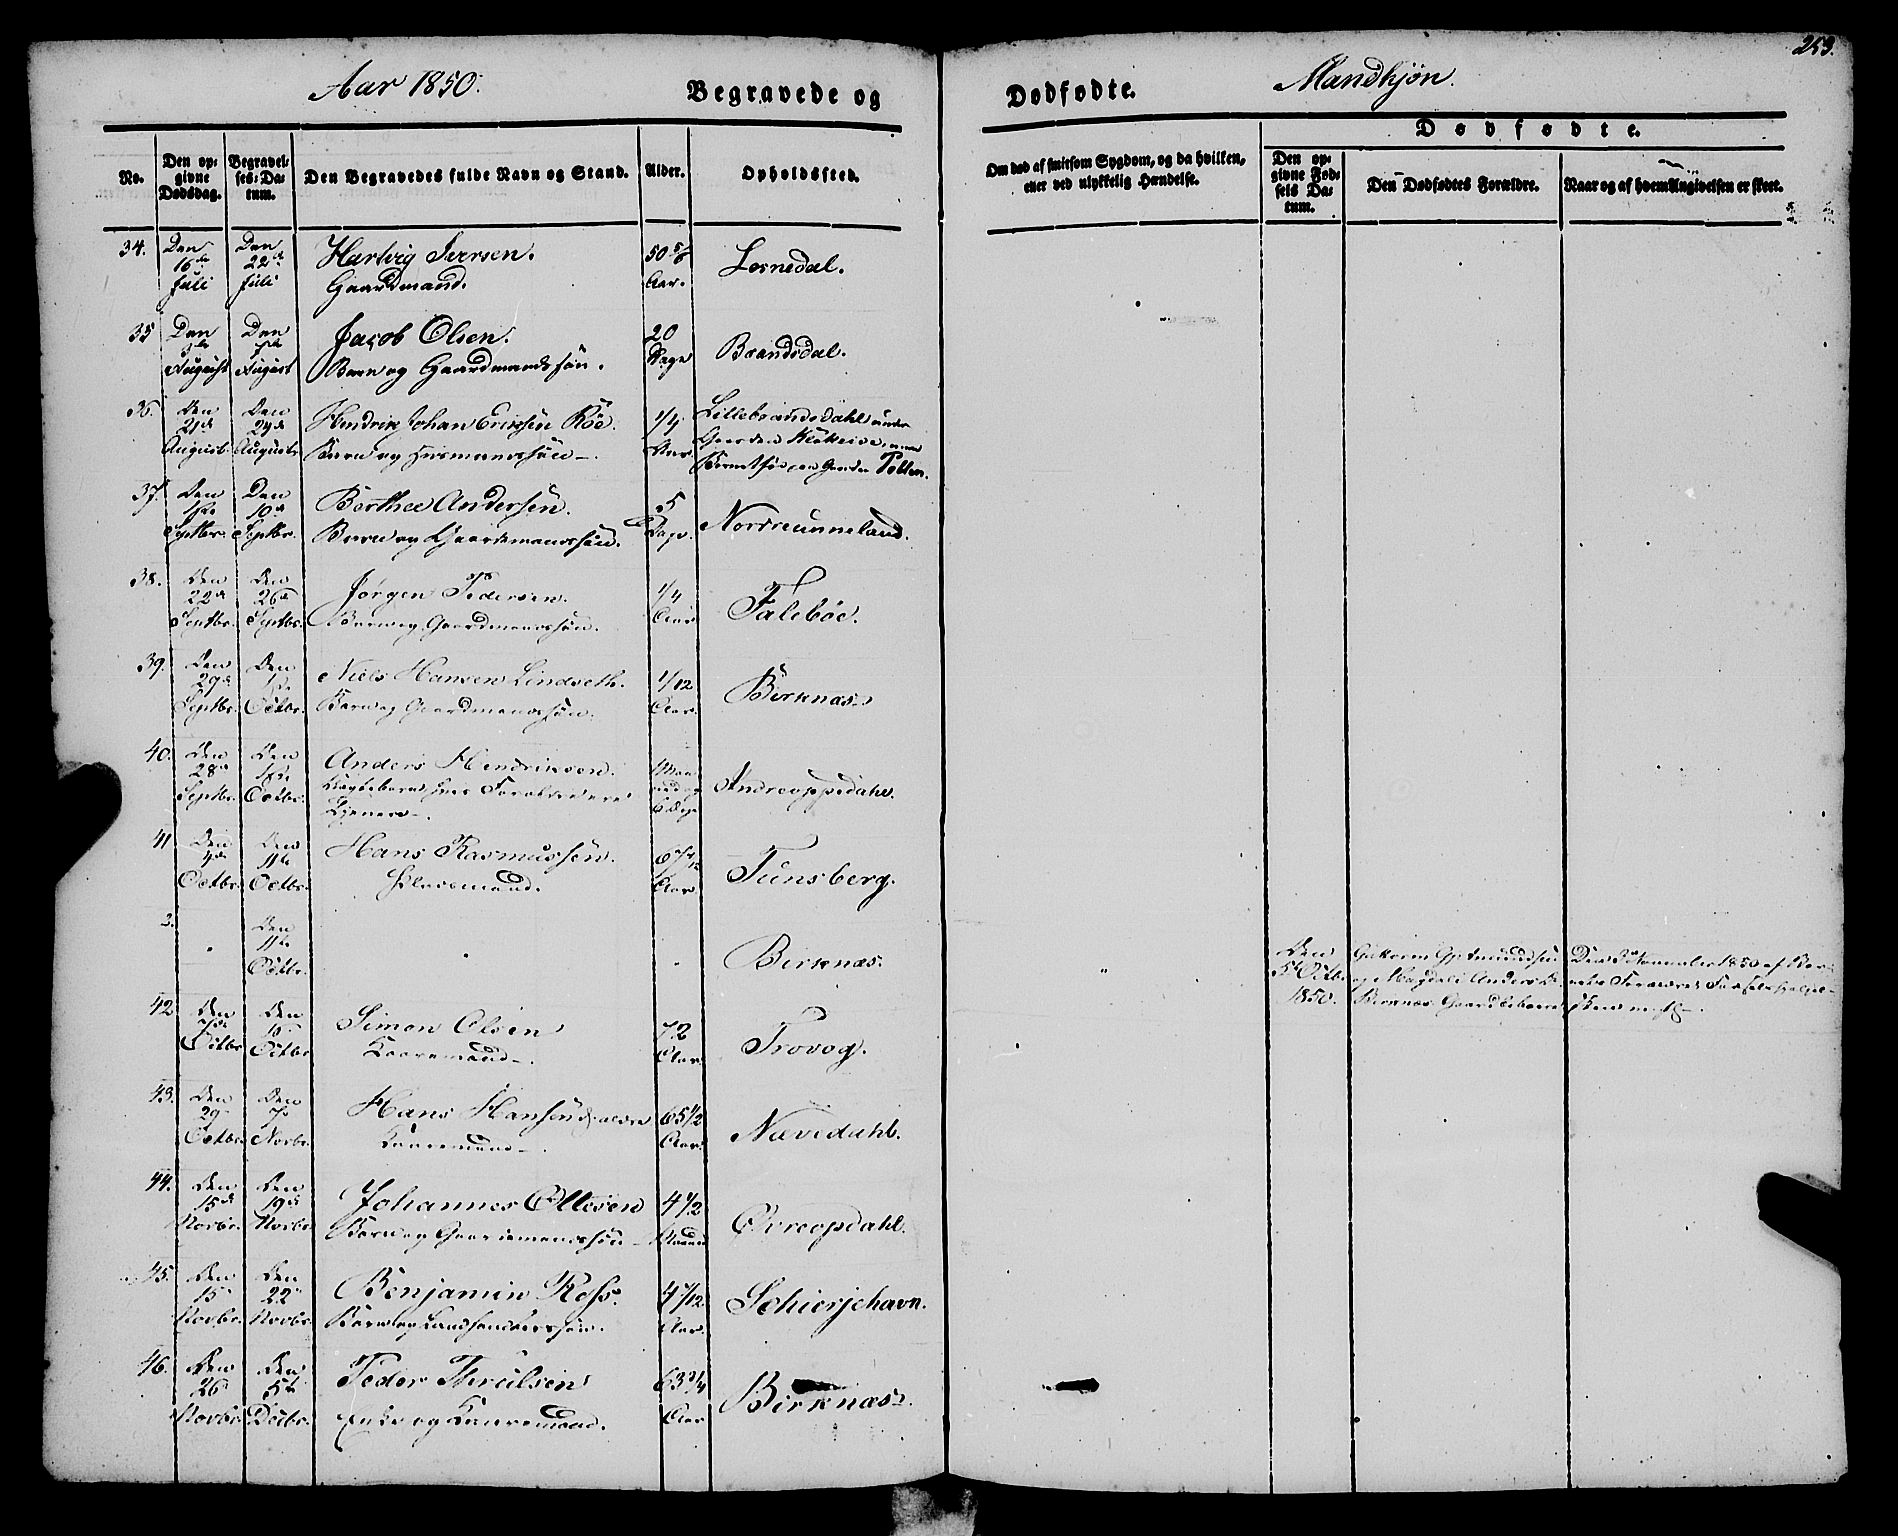 253.
Aar 1850.
Begravede og
Dødfødte.
Mandkjøn.
No.
Den op-
givne
Dødsdag.
Begravel-
ses-Da-
tum.
Den Begravedes fulde Navn og Stand.
Alder.
Opholdssted.
Om død af smitsom Sygdom, og da hvilken,
eller ved ulykkelig Hændelse.
Dødfødte.
Den op-
givne Fød-
sels Da-
tum.
Den Dødfødtes Forældre.
Naar og af hvem Angivelsen er skeet.
34.
Den
16de
Juli
Den
22de
Juli
Hartvig Iversen.
Gaardmand.
50 5/6
Aar.
Losnedal.
35
Den
August
Den
7de
August
Jacob Olsen.
Barn og Gaardmandssøn.
20
Dage
Brandsdal.
36.
Den
21de
August.
Den
24de
August
Hendrik Johan Eriksen Röe.
Barn og Huusmandssøn.
1/4
Aar.
Lillebrandsdahl under
Gaarden
Gaarden Tolten.
37.
Den
Septbr.
Den
10de
Septbr.
Berthel Andersen.
Barn og Gaardmandssøn.
5
Dage.
Nordreunneland.
38.
Den
22de
Septbr.
Den
26de
Septbr.
Jørgen Pedersen.
Barn og Gaardmandssøn.
1/4
Aar
Taleböe.
39.
Den
29de
Septbr.
Den
Octbr.
Niels Hansen Lindseth.
Barn og Gaardmandssøn.
1/12
Aar.
Birknæs
40.
Den
28de
Septbr.
Den
Octbr.
Anders Hendriksen.
Indreoppedahl.
41
Den
4de
Octbr.
Den
11te
Octbr.
Hans Rasmussen.
Aar.
Tunsberg.
3.
"
Den
11te
Octbr.
"
"
Birknæs.
"
Den
5te Octbr.
1850.
Guttorm Gutmundsen
og Magdeli Andersd.
Birknæs
Den
42.
Den
Octbr.
Den
19
Octbr.
Simon Olsen
Kaaremand.
72
Aar.
Trovog.
43.
Den
29
Octbr.
Den
7de
Novbr.
Hans Hansen
Kaaremand.
65 1/2
Aar.
Nævedahl.
44.
Den
15de
Novbr.
Den
19de
Novbr.
Johannes Ottesen
Barn og Gaardemandssøn
4 1/2
Maaned
Øvreopdahl.
45.
Den
15
Novbr.
Den
22
Novbr.
Benjamin Ross.
Barn og Landhandlerssøn.
Aar.
Schierjehavn.
46.
Den
26
Novbr.
Den
5te
Decbr.
Peder Truulsen
Enke og Kaaremand.
63 3/4
Aar
Birknæs.